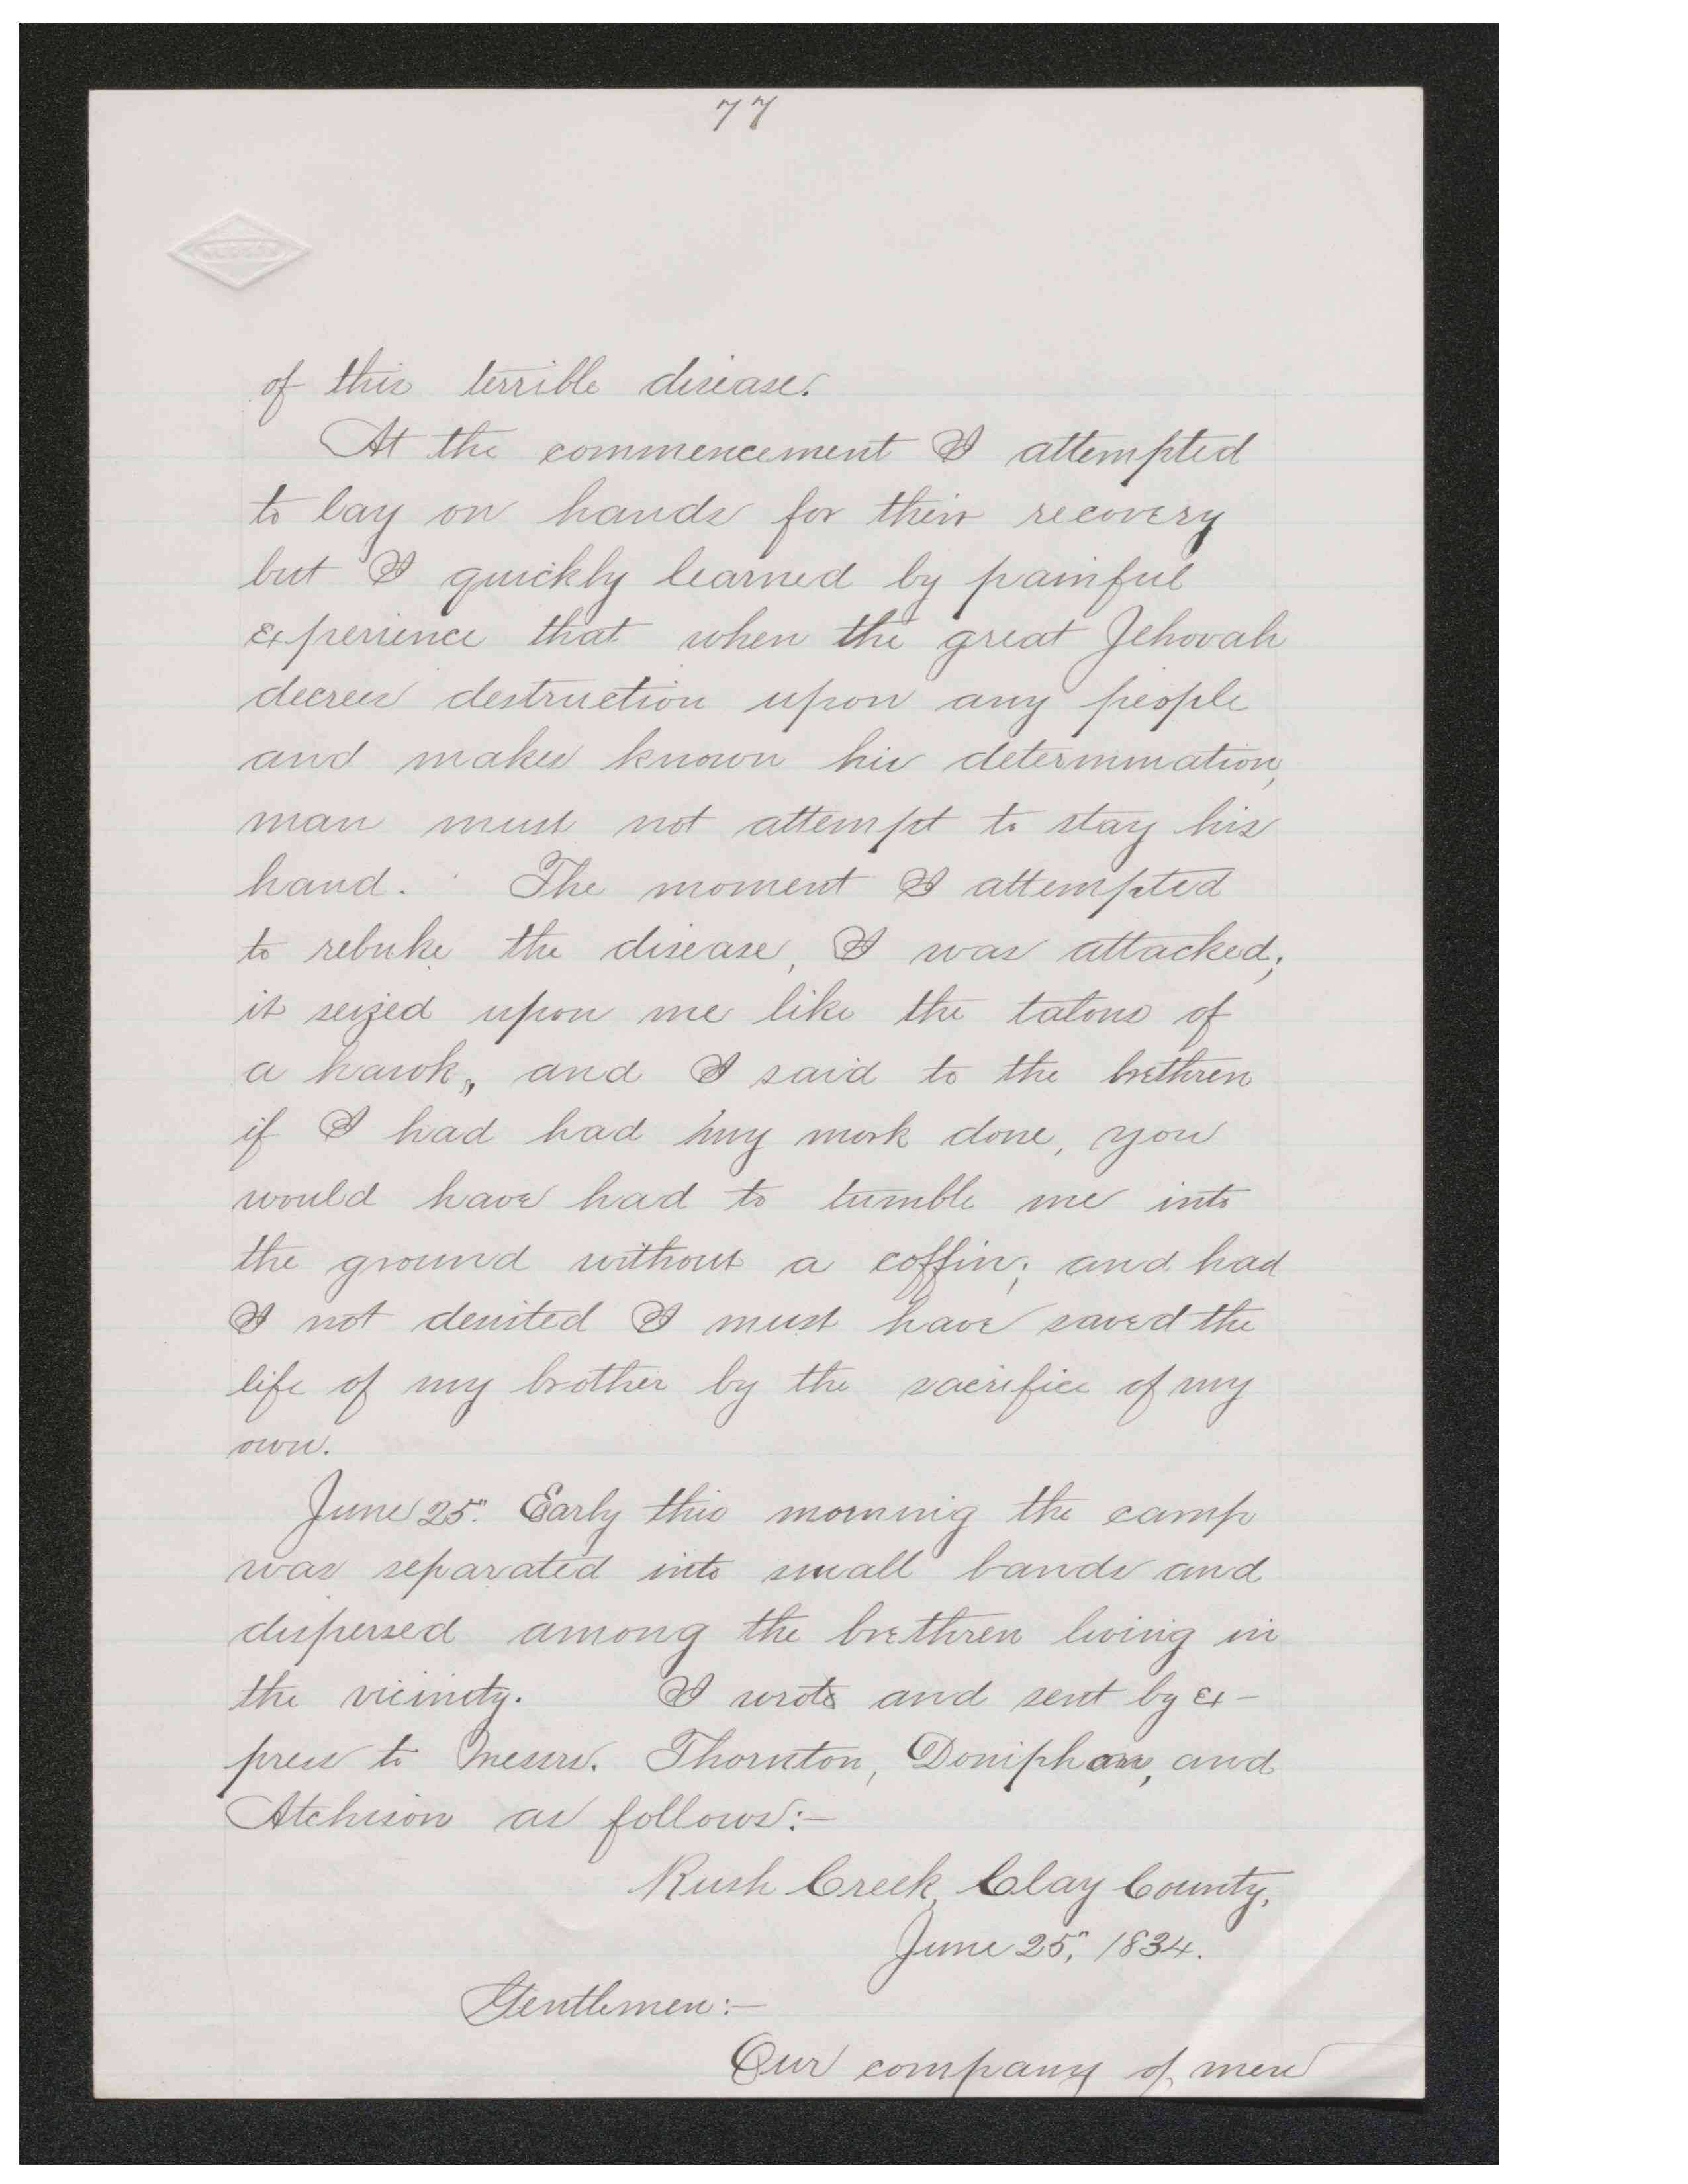 77
of this terrible disease.
At the commencement I attempted
to lay on hands for their recovery
but I quickly learned by painful
experience that when the great Jehovah
decrees destruction upon any people
and makes known his determination,
man must not attempt to stay his
hand. The moment I attempted
to rebuke the disease, I was attacked;
it seized upon me like the talons of
a hawk,, and I said to the brethren
if I had had my work done, you
would have had to tumble me into
the ground without a coffin; and had
I not desisted I must have saved the
life of my brother by the sacrifice of my
own.
June 25". Early this morning the camp
was separated into small bands and
dispersed among the brethren living in
the vicinity. I wrote and sent by ex-
press to Messrs. Thornton, Doniphan, and
Atchison as follows:—
Rush Creek, Clay County,
June 25", 1834.
Gentlemen:—
Our company of men